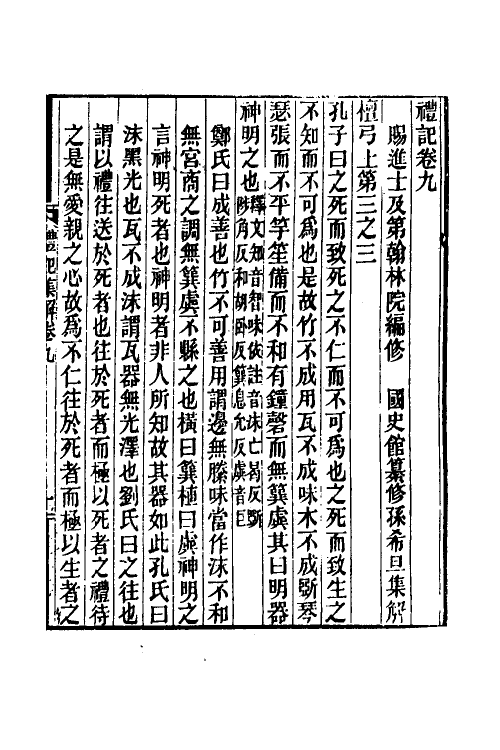 禮記卷九
賜進士及第翰林院編修　國史館纂修孫希旦集解
檀弓上第三之三
孔子曰之死而致死之不仁而不可為也之死而致生之
不知而不可為也是故竹不成用瓦不成味木不成斲琴
瑟張而不平竽笙備而不和有鐘磬而無簨虡其曰明器
神明之也釋文知音智味依註音沬亡曷反斲
陟角反和胡臥反簨息允反虡音巨
鄭氏曰成善也竹不可善用謂邊無縢味當作沬不和
無宮商之調無簨虡不縣之也橫曰簨植曰虡神明之
言神明死者也神明者非人所知故其器如此孔氏曰
沬黑光也瓦不成沬謂瓦器無光澤也劉氏曰之往也
謂以禮往送於死者也往於死者而極以死者之禮待
之是無愛親之心故為不仁往於死者而極以生者之
禮記集解卷九
一